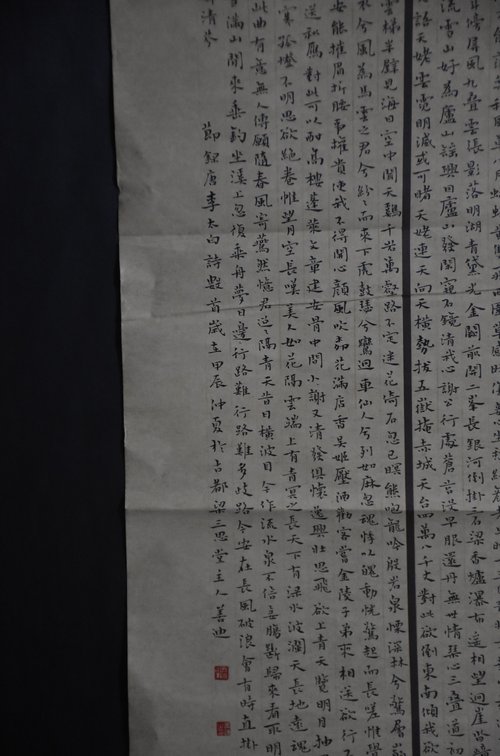 斗傍屏風九疊雲錦張影落明湖青黛光金闕前開二峯長銀河倒掛三石梁香爐瀑布遙相望迴崖沓
流雪山好為廬山謠興因廬山發閑窺石鏡清我心謝公行處蒼苔沒早服還丹無世情琴心三疊道初
語天姥雲霓明滅或可睹天姥連天向天橫勢拔五嶽掩赤城天台四萬八千丈對此欲倒東南傾我欲
雲梯半壁見海日空中聞天雞千岩萬壑路不定迷花倚石忽已暝熊咆龍吟殷岩泉慄深林兮驚層
衣兮風為馬雲之君兮紛紛而來下虎鼓瑟兮鸞迴車仙人兮列如麻忽魂悸以魄動恍驚起而長嗟惟覺
安能摧眉折腰事權貴使我不得開心顏風吹柳花滿店香吳姬壓酒勸客嘗金陵子弟來相送欲行
送秋雁對此可以酣高樓蓬萊文章建安骨中間小謝又清發俱懷逸興壯思飛欲上青天覽明月抽
寒孤燈不明思欲絕卷帷望月空長嘆美人如花隔雲端上有青冥之長天下有淥水波瀾天長地遠魂
此曲有意無人傳願隨春風寄燕然憶君迢迢隔青天昔日橫波目今作流水泉不信妾腸斷歸來看取明
雪滿山閒來垂釣坐溪上忽復乘舟夢日邊行路難行路難多歧路今安在長風破浪會有時直掛
清芬
節錄唐李太白詩數首歲在甲辰仲夏於古都梁三思堂主人善迪